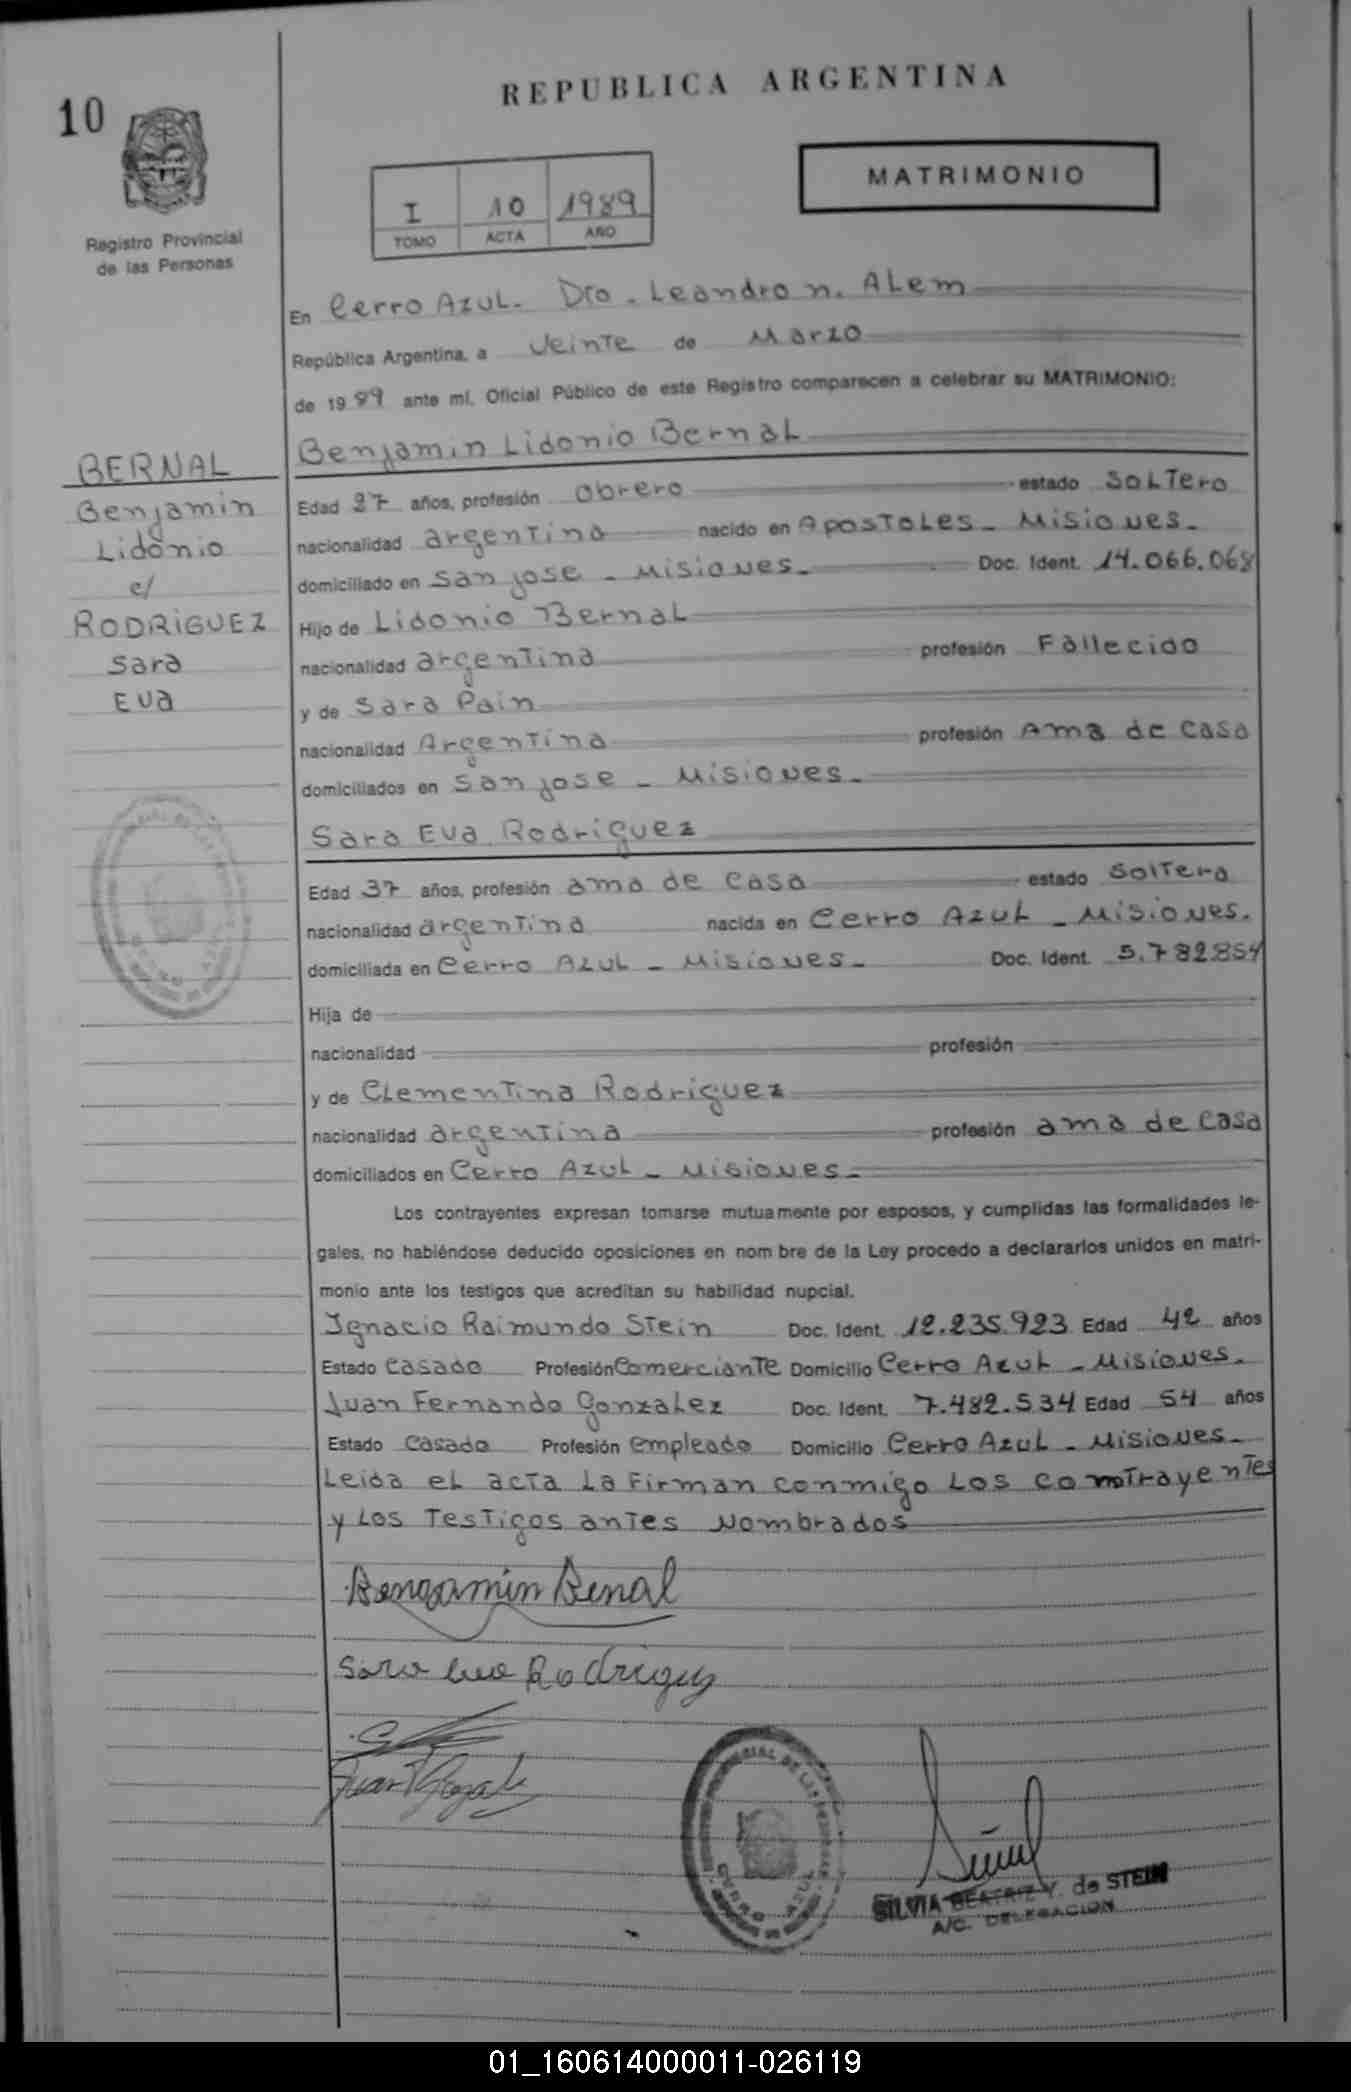 REPUBLICA ARGENTINA
10
MATRIMONIO
I 10 1989
TOMO ACTA AÑO
Registro Provincial
de las Personas
En Cerro Azul. Dto. Leandro n. Alem
República Argentina, a veinte de Marzo
de 1989 ante mí, Oficial Público de este Registro comparecen a celebrar su MATRIMONIO:
Benjamin Lidonio Bernal
BERNAL
Benjamin
Lidonio
c/
RODRIGUEZ
Sara
Eva
Edad 27 años, profesión obrero estado soltero
nacionalidad argentina nacido en Apostoles - Misiones.
domiciliado en San jose - Misiones. Doc. Ident. 14.066.068
Hijo de Lidonio Bernal
nacionalidad argentina profesión Fallecido
y de Sara Pain
nacionalidad Argentina profesión Ama de casa
domiciliados en San jose - Misiones.
Sara Eva Rodriguez
Edad 37 años, profesión ama de casa estado soltera
nacionalidad argentina nacida en Cerro Azul - Misiones.
domiciliada en Cerro Azul - Misiones. Doc. Ident. 5.782.854
Hija de
nacionalidad profesión
y de Clementina Rodriguez
nacionalidad argentina profesión ama de casa
domiciliados en Cerro Azul - Misiones.
Los contrayentes expresan tomarse mutuamente por esposos, y cumplidas las formalidades le-
gales, no habiéndose deducido oposiciones en nom bre de la Ley procedo a declararlos unidos en matri-
monio ante los testigos que acreditan su habilidad nupcial.
Ignacio Raimundo Stein Doc. Ident. 12.235.923 Edad 42 años
Estado casado Profesión Comerciante Domicilio Cerro Azul - Misiones.
Juan Fernando Gonzalez Doc. Ident. 7.482.534 Edad 54 años
Estado casado Profesión empleado Domicilio Cerro Azul - Misiones.
Leida el acta la firman conmigo los contrayentes
y los testigos antes nombrados
Bengamin Benal
Sara Eva Rodriguez
CERRO AZUL
SILVIA BEATRIZ Y. de STEIN
A/C. DELEGACION
01_160614000011-026119